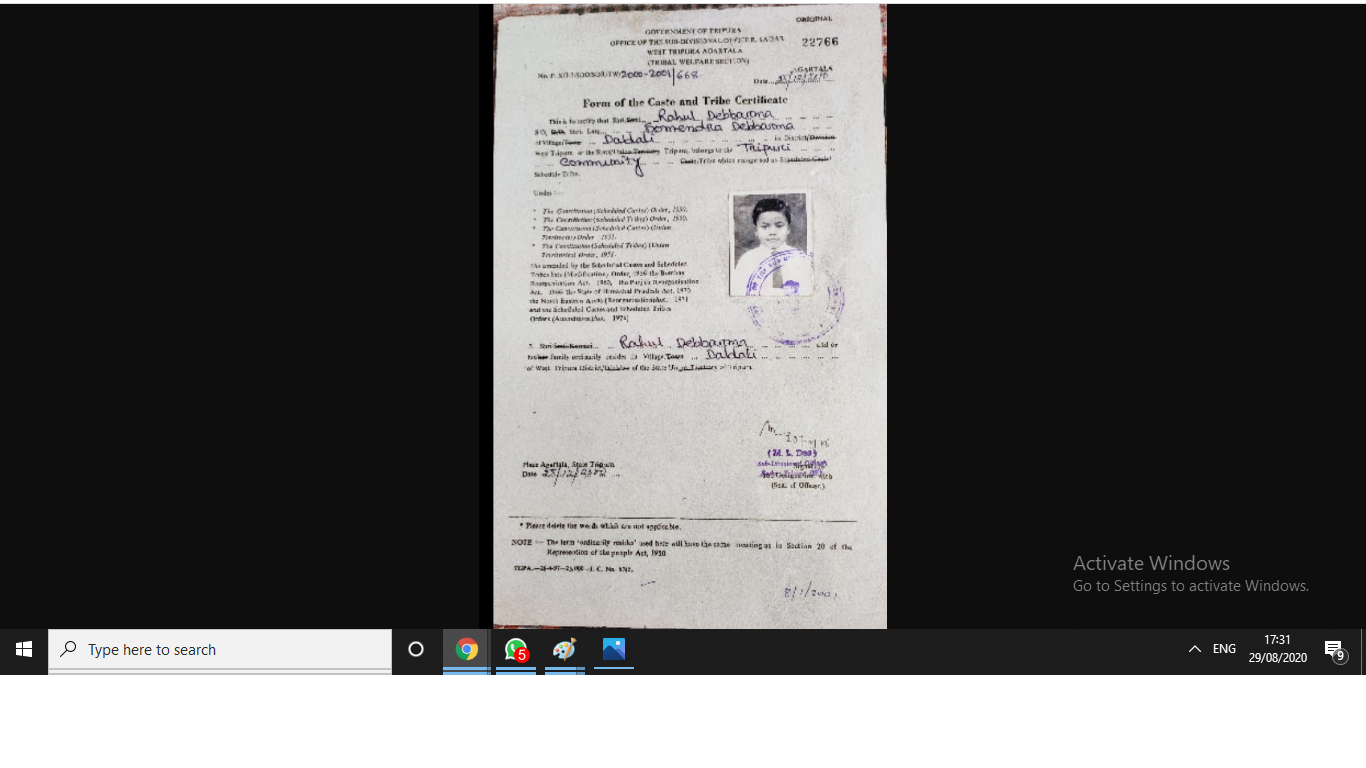 ORIGINAL
GOVERNMENT OF TRIPURA
OFFICE OF THE SUB-DIVISIONAL OFFICER, SADAR
22766
WEST TRIPURA AGARTALA
(TRIBAL WELFARE SECTION)
AGARTALA
2000-2001/668
Date
Form of the Caste and Tribe Certificate
This is to certify that Shri Rahul Debbarma
S/O, Shri Late Somendra Debbarma
of Village/Town Daldali in District/Division
West Tripura of the State/Union Territory Tripura, belongs to the Tripuri
Community Caste/Tribe which recognised as Scheduled Caste/
Schedule Tribe.
Under :-
* The Constitution (Scheduled Castes) Order, 1950.
* The Constitution (Scheduled Tribes) Order, 1950.
* The Constitution (Scheduled Castes) (Union
Territories Order 1951.
* The Constitution (Scheduled Tribes) (Union
Territories) Order, 1951.
the amended by the Scheduled Castes and Scheduled
Tribes lists (Modification) Order, 1956 the Bombay
Reorganisation Act. 1960, the Punjab Reorganisation
Act. 1966 the State of Himachal Pradesh Act, 1970
the North Eastern Areas (Reorganisation) Act. 1971
and the Scheduled Castes and Scheduled Tribes
Orders (Amendment) Act. 1976]
2. Shri Smti Kumari Rahul Debbarma and or
his/her family ordinarily resides in Village/Town Daldali
of West Tripura District/Division of the State/Union Territory of Tripura.
(M. L. Das)
Sub-Divisional Officer
Place Agartala, State Tripura
Date 25/12/2000
(Seal of Officer)
* Please delete the words which are not applicable.
NOTE :- The term 'ordinarily resides' used here will have the same meaning as in Section 20 of the
Represention of the people Act, 1950
Activate Windows
Go to Settings to activate Windows.
Type here to search
5
ENG
17:31
29/08/2020
9